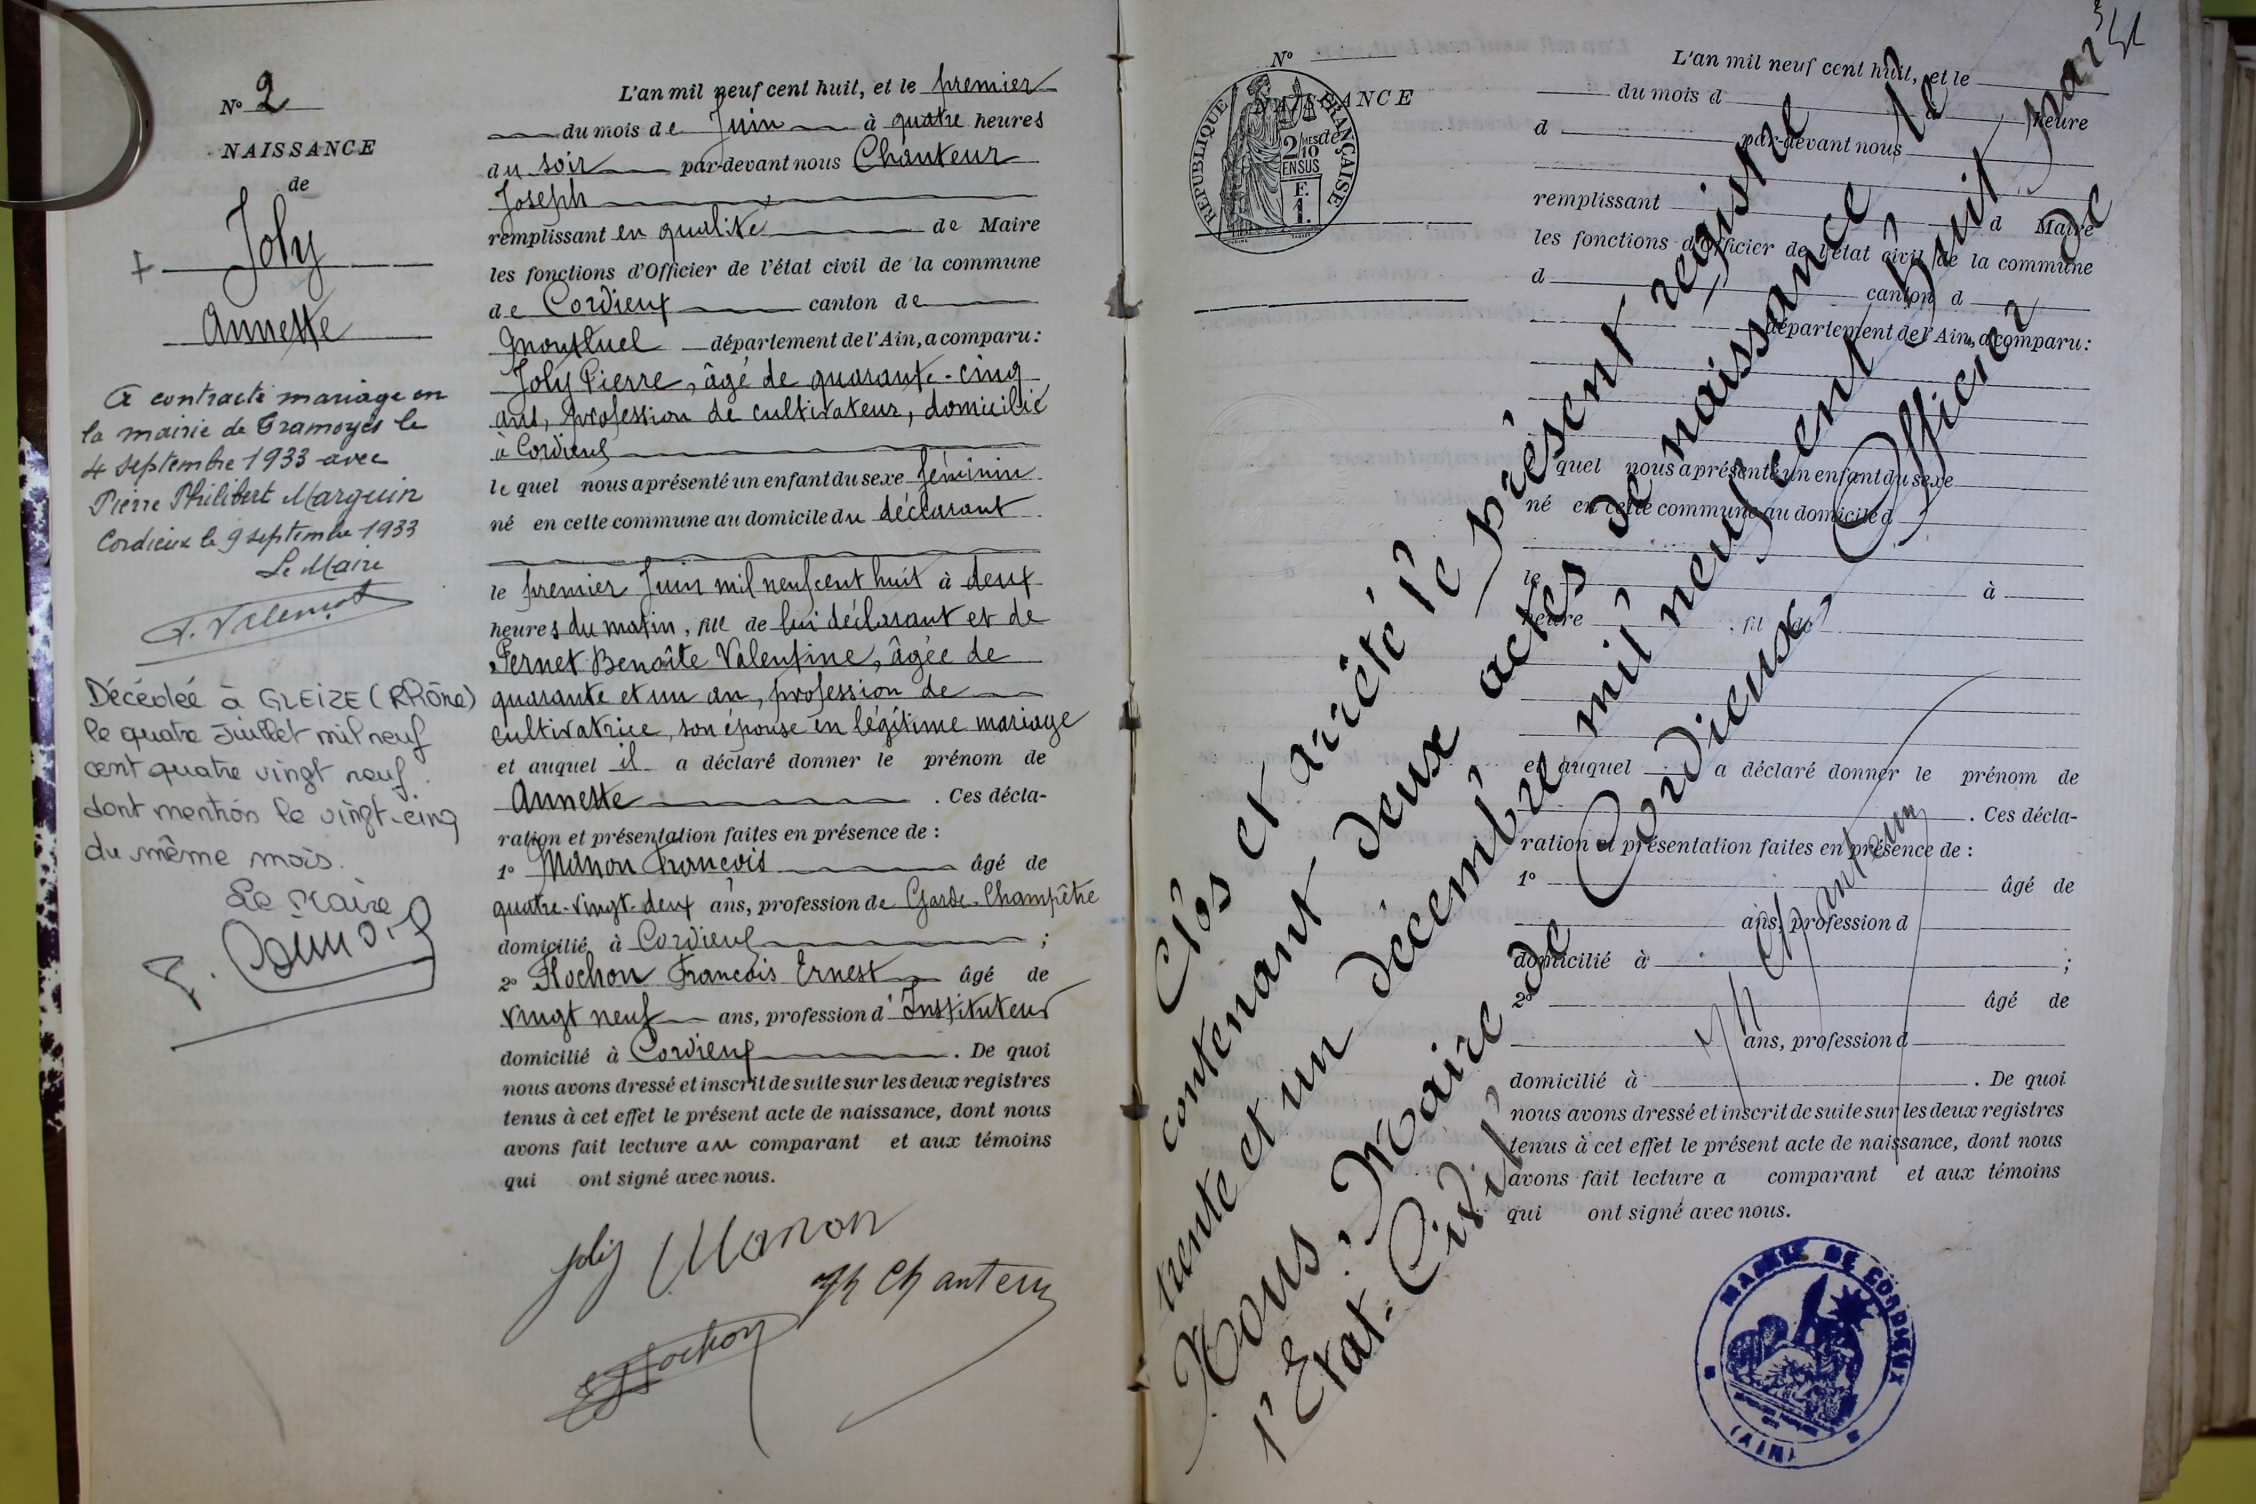 N° 2
NAISSANCE
de
Joly
Annette
A contracté mariage en
la mairie de Tramoyes le
4 septembre 1933 avec
Pierre Philibert Marguin
Cordieux le 9 septembre 1933
Le Maire
Décédée à GLEIZE (Rhône)
le quatre Juillet mil neuf
cent quatre vingt neuf.
dont mention le vingt-cinq
du même mois.
Le Maire
L'an mil neuf cent huit, et le premier
du mois de Juin à quatre heures
du soir par-devant nous Chanteur
Joseph
remplissant en qualité de Maire
les fonctions d'Officier de l'état civil de la commune
de Cordieux canton de
Montluel département de l'Ain, a comparu :
Joly Pierre, âgé de quarante-cinq
ans, profession de cultivateur, domicilié
à Cordieux
lequel nous a présenté un enfant du sexe féminin
né en cette commune au domicile du déclarant
le premier Juin mil neuf cent huit à deux
heures du matin, fille de lui déclarant et de
Pernet Benoîte Valentine, âgée de
quarante et un an, profession de
cultivatrice, son épouse en légitime mariage
et auquel il a déclaré donner le prénom de
Annette. Ces décla-
ration et présentation faites en présence de :
1° Manon François âgé de
quatre-vingt-deux ans, profession de Garde-Champêtre
domicilié à Cordieux ;
2° Flochon François Ernest âgé de
vingt neuf ans, profession d'Instituteur
domicilié à Cordieux. De quoi
nous avons dressé et inscrit de suite sur les deux registres
tenus à cet effet le présent acte de naissance, dont nous
avons fait lecture au comparant et aux témoins
qui ont signé avec nous.
Joly Manon
Jh Chanteur
E Flochon
N°
NAISSANCE
de
RÉPUBLIQUE FRANÇAISE
2/10MES
EN SUS
F.
1.
L'an mil neuf cent huit, et le
du mois d à heure
d par-devant nous
remplissant d Maire
les fonctions d'Officier de l'état civil de la commune
d canton d
département de l'Ain, a comparu :
quel nous a présenté un enfant du sexe
né en cette commune au domicile d
le à
heure , fil de
et auquel a déclaré donner le prénom de
. Ces décla-
ration et présentation faites en présence de :
1° âgé de
ans, profession d
domicilié à ;
2° âgé de
ans, profession d
domicilié à . De quoi
nous avons dressé et inscrit de suite sur les deux registres
tenus à cet effet le présent acte de naissance, dont nous
avons fait lecture a comparant et aux témoins
qui ont signé avec nous.
Clos et arrêté le présent registre
contenant deux actes de naissance le
trente et un décembre mil neuf cent huit par
Nous, Maire de Cordieux, Officier de
l'Etat-Civil
Jh Chanteur
MAIRIE DE CORDIEUX
(AIN)